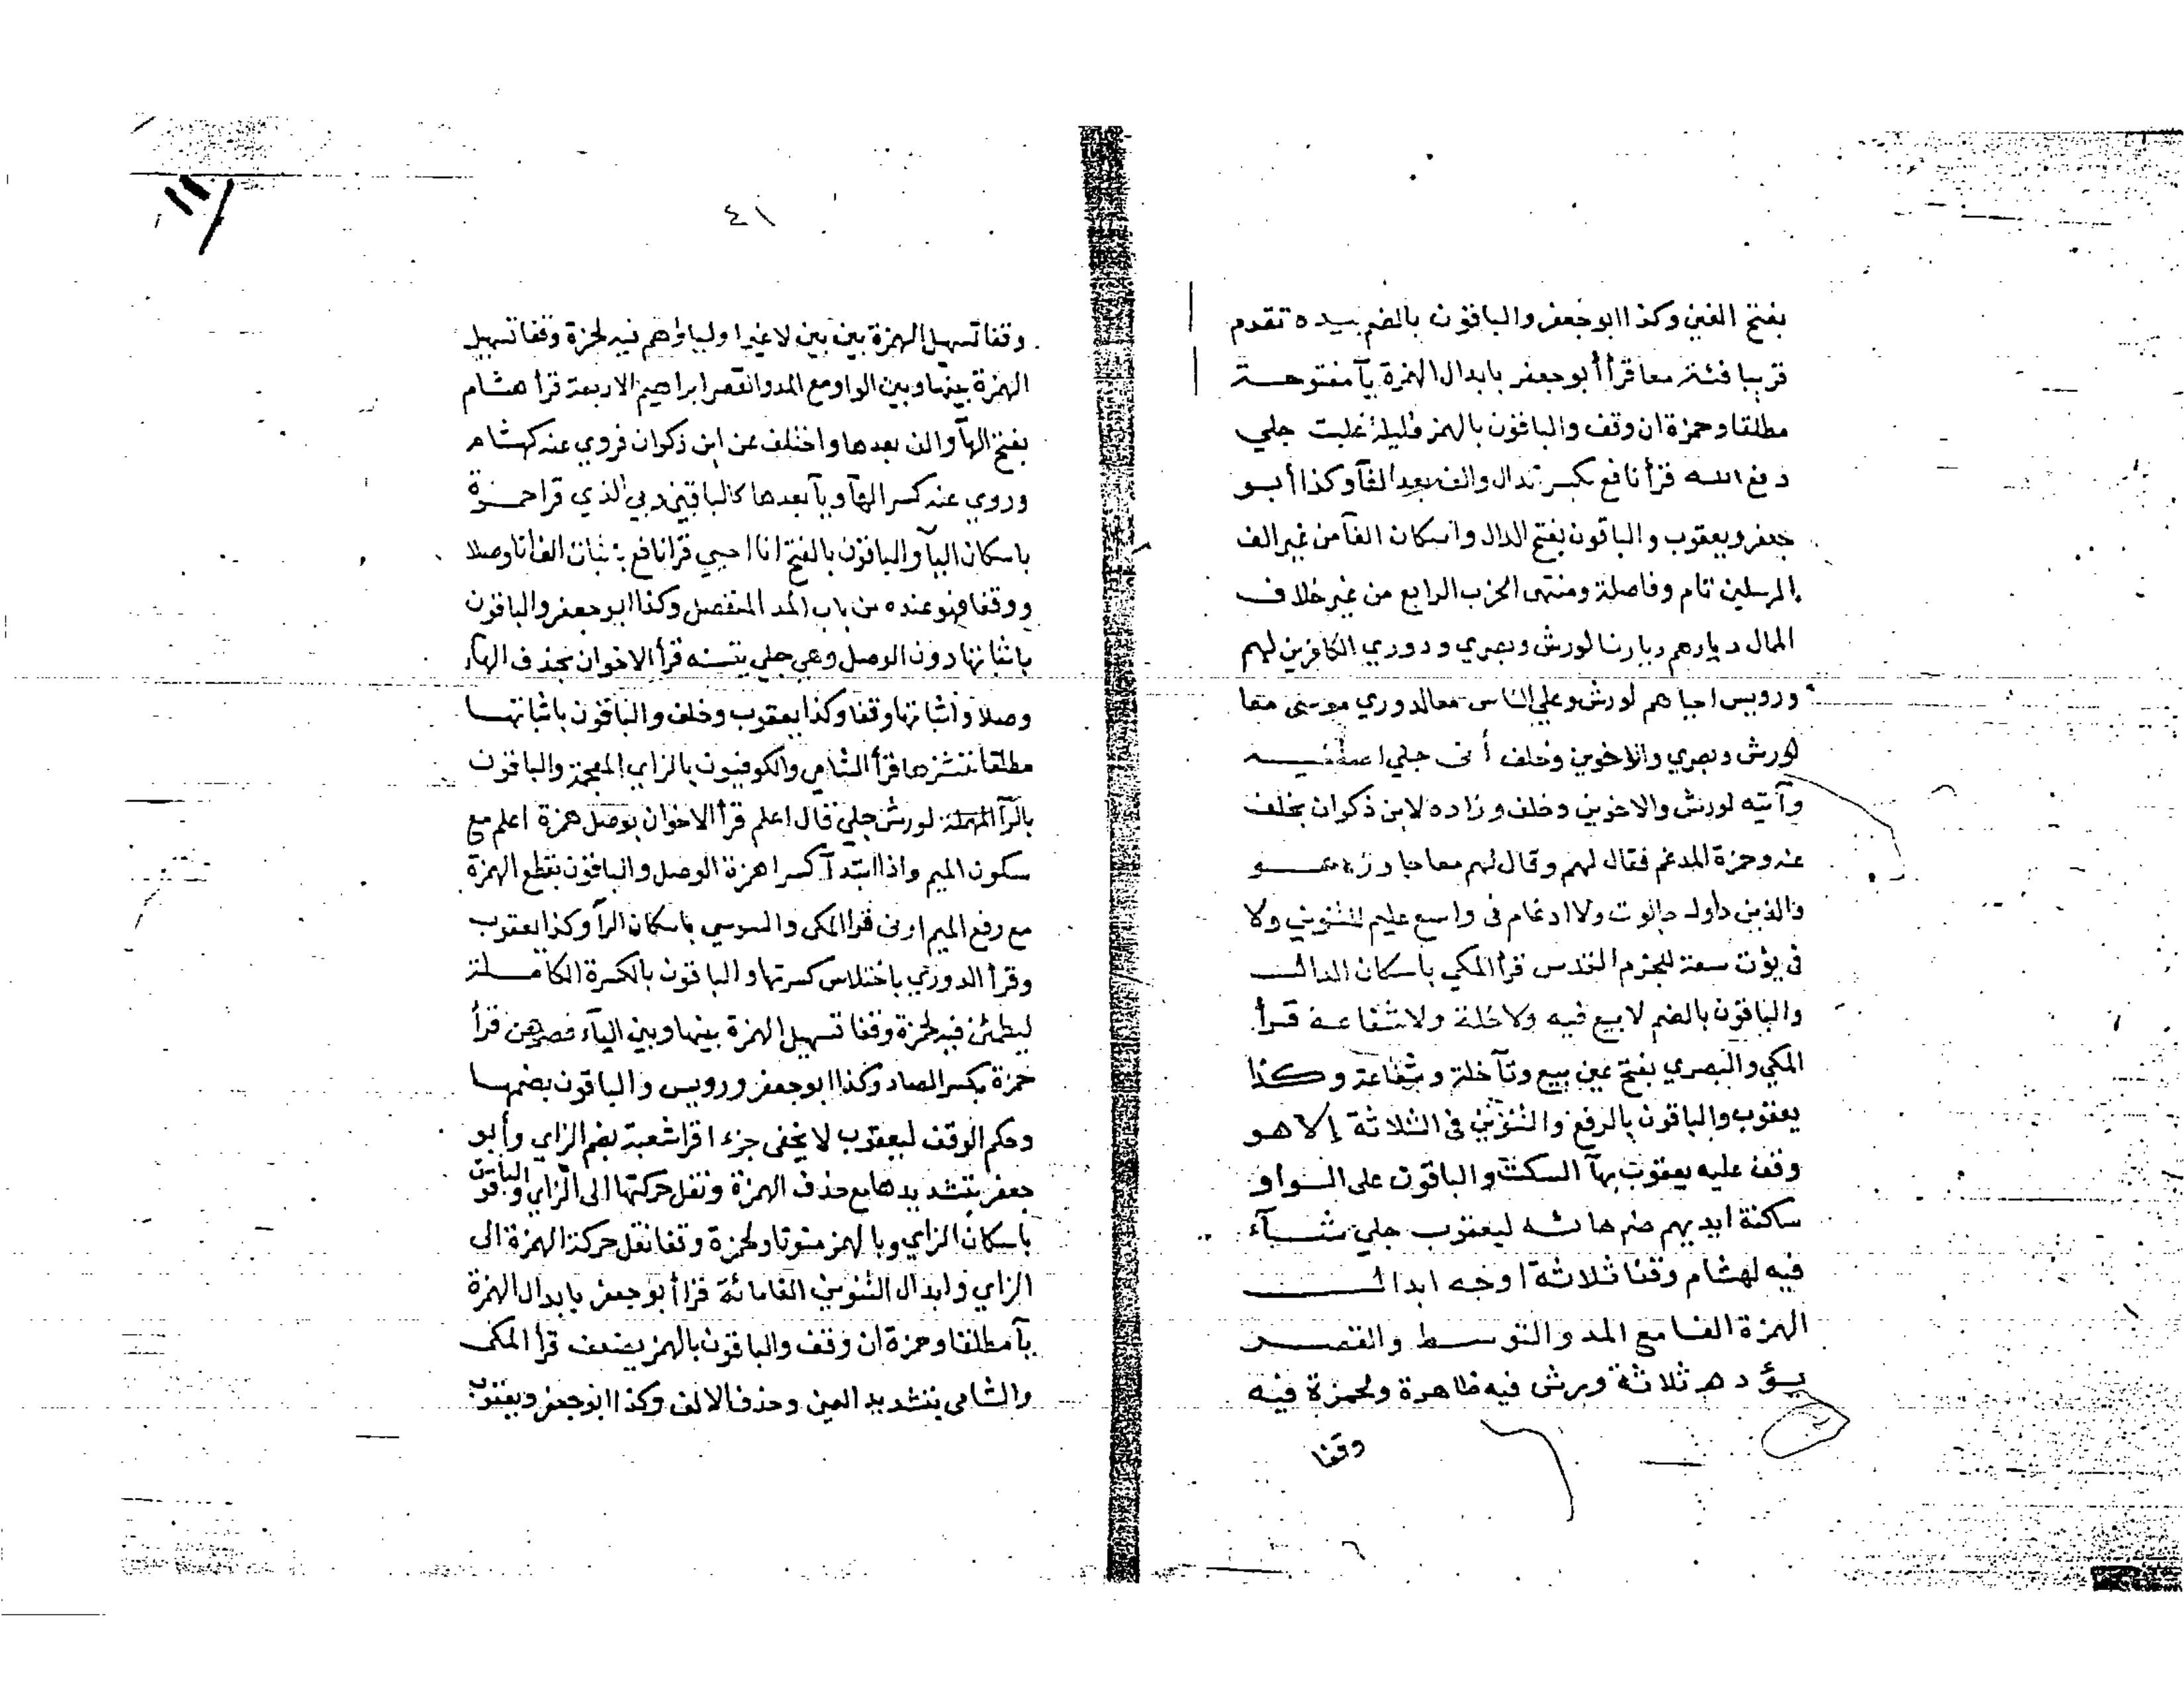 بفتح الغين وكذا ابو جعفر والباقون بالضم بيده تقدم
قريبا فئة معا قرأ أبو جعفر بابدال الهمزة يآ مفتوحة
مطلقا وحمزة ان وقف والباقون بالهمز قليلة غلبت جلي
دفع الله قرأ نافع بكسر الدال والف بعد الفآ وكذا أبو
جعفر ويعقوب والباقون بفتح الدال واسكان الفآ من غير الف
المرسلين تام وفاصلة ومنتهى الحزب الرابع من غير خلاف
الممال ديارهم ديارنا لورش وبصري ودوري الكافرين لهم
ورويس احياهم لورش وعلي الناس معا لدوري موسى معا
لورش وبصري والاخوين وخلف أنى جلي اصطفيه
وآتيه لورش والاخوين وخلف وزاده لابن ذكوان بخلف
عنه وحمزة المدغم فقال لهم وقال لهم معا جاوزه هو
والذين داود جالوت ولا ادغام فى واسع عليم للتنوين ولا
فى يؤت سعة للجزم القدس قرأ المكي باسكان الدال
والباقون بالضم لا بيع فيه ولا خلة ولا شفاعة قرأ
المكي والبصري بفتح عين بيع وتآ خلة وشفاعة وكذا
يعقوب والباقون بالرفع والتنوين فى الثلاثة إلا هو
وقف عليه يعقوب بهآ السكت والباقون على الواو
ساكنة ايديهم ضم هائه ليعقوب جلي شآء
فيه لهشام وقفا ثلاثة اوجه ابدال
الهمزة الفا مع المد والتوسط والقصر
يؤده ثلاثة ورش فيه ظاهرة ولحمزة فيه
وقفا
٤١
وقفا تسهيل الهمزة بين بين لا غير اولياؤهم فيه لحمزة وقفا تسهيل
الهمزة بينها وبين الواو مع المد والقصر ابراهيم الاربعة قرأ هشام
بفتح الهآ والف بعدها واختلف عن ابن ذكوان فروي عنه كهشام
وروي عنه كسر الهآ ويآ بعدها كالباقين ربي الذي قرا حمزة
باسكان اليآ والباقون بالفتح انا احيي قرا نافع باثبات الف أنا وصلا
ووقفا فهو عنده من باب المد المنفصل وكذا ابو جعفر والباقون
باثباتها دون الوصل وهي جلي يتسنه قرأ الاخوان بحذف الهآء
وصلا واثباتها وقفا وكذا يعقوب وخلف والباقون باثباتها
مطلقا ننشزها قرأ الشامي والكوفيون بالزاي المعجمة والباقون
بالرآ المهملة لورش جلي قال اعلم قرأ الاخوان بوصل همزة اعلم مع
سكون الميم واذا ابتدآ كسرا همزة الوصل والباقون بقطع الهمزة
مع رفع الميم ارنى قرا المكي والسوسي باسكان الرآ وكذا يعقوب
وقرأ الدوري باختلاس كسرتها والباقون بالكسرة الكاملة
ليطمئن فيه لحمزة وقفا تسهيل الهمزة بينها وبين اليآء فصرهن قرأ
حمزة بكسر الصاد وكذا ابو جعفر ورويس والباقون بضمها
وحكم الوقف ليعقوب لا يخفى جزء اقرا شعبة بضم الزاي وأبو
جعفر بتشديدها مع حذف الهمزة ونقل حركتها الى الزاي والباقون
باسكان الزاي وبالهمز منونا ولحمزة وقفا نقل حركة الهمزة الى
الزاي وابدال التنوين الفا مائة قرا أبو جعفر بابدال الهمزة
يآ مطلقا وحمزة ان وقف والباقون بالهمز يضعف قرأ المكي
والشامي بتشديد العين وحذف الالف وكذا ابو جعفر ويعقوب